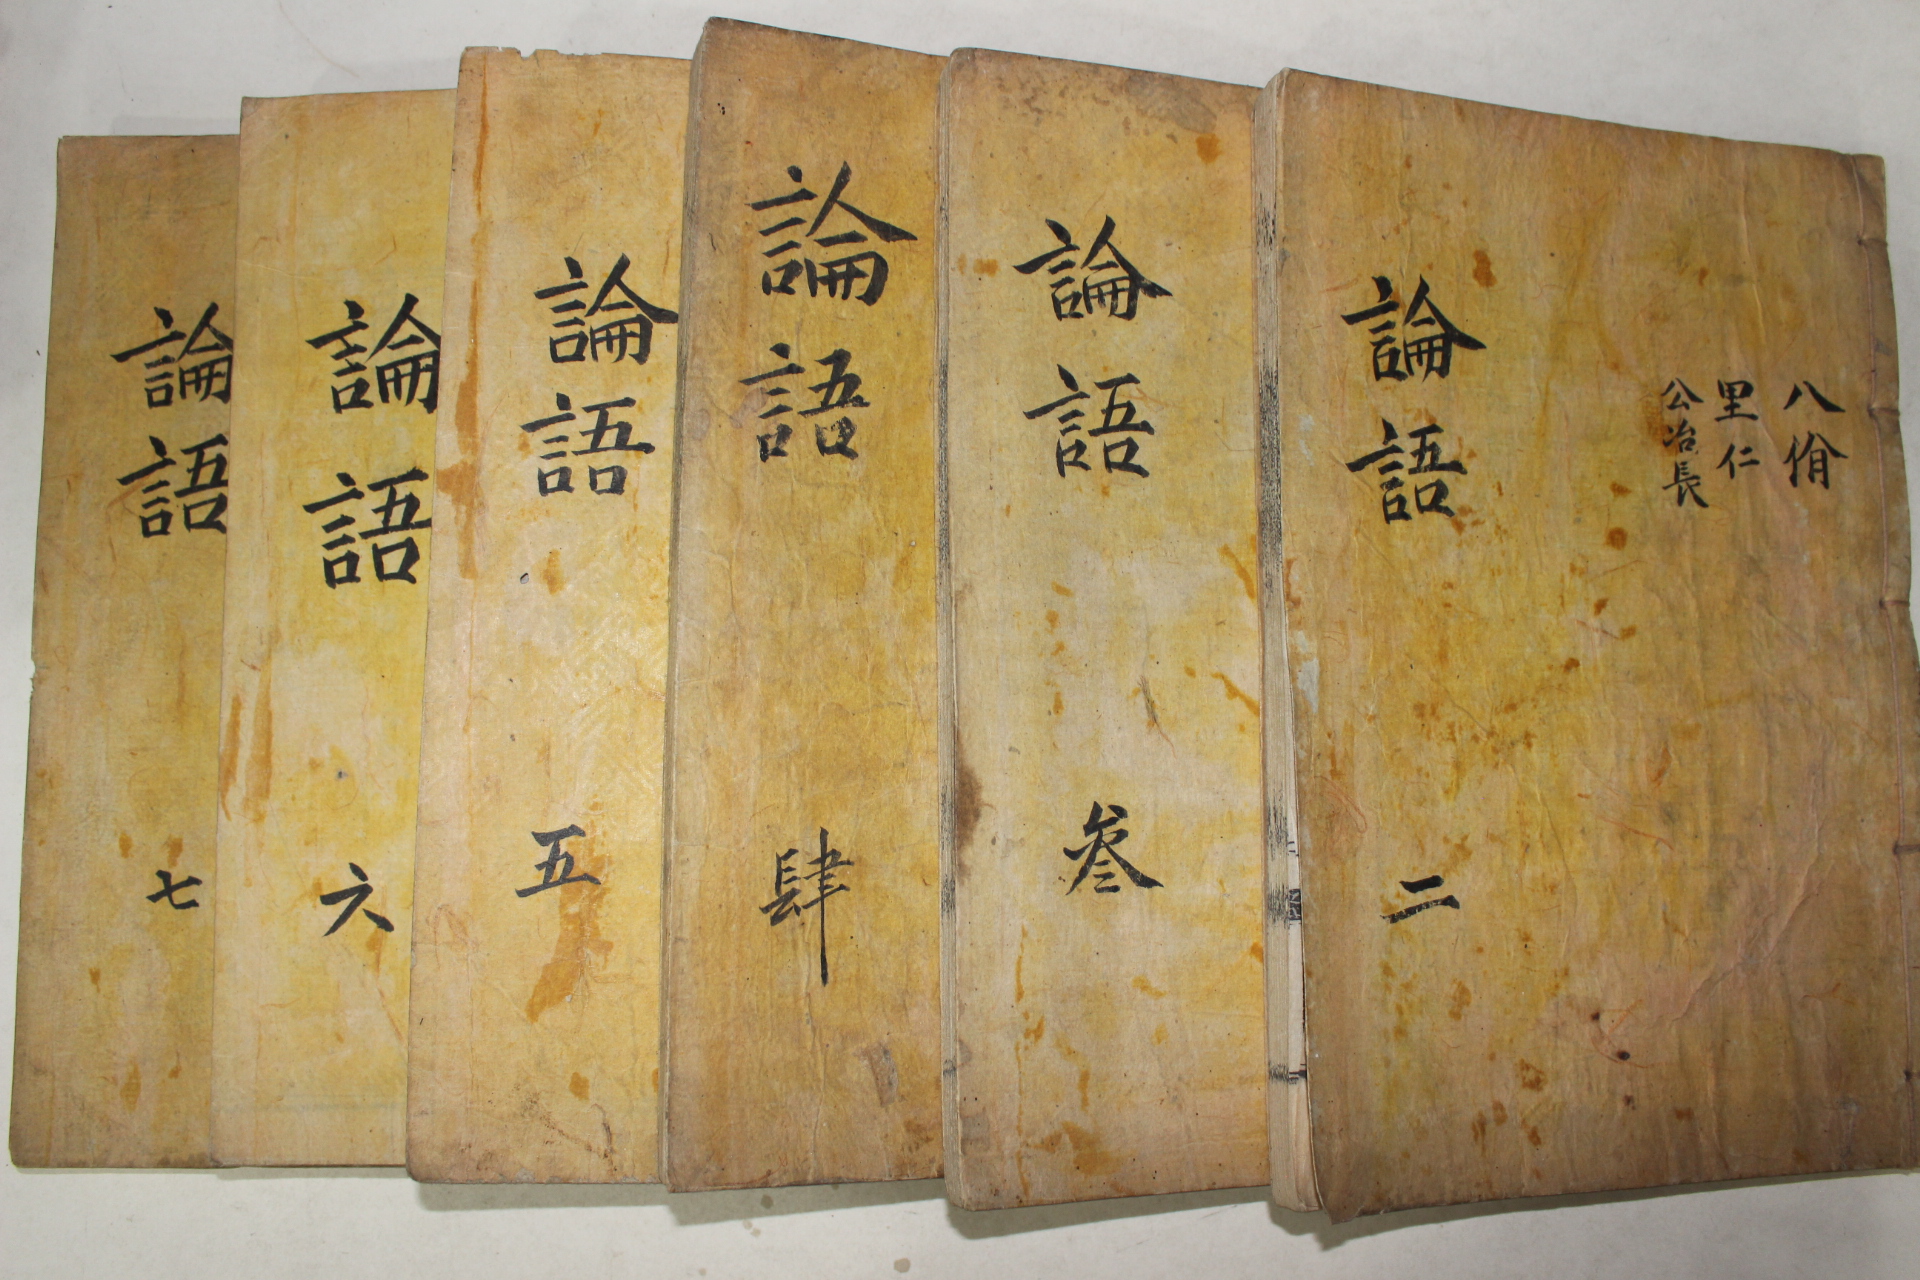 八佾
里仁
公冶長
論語 二
論語 叄
論語 肆
論語 五
論語 六
論語 七